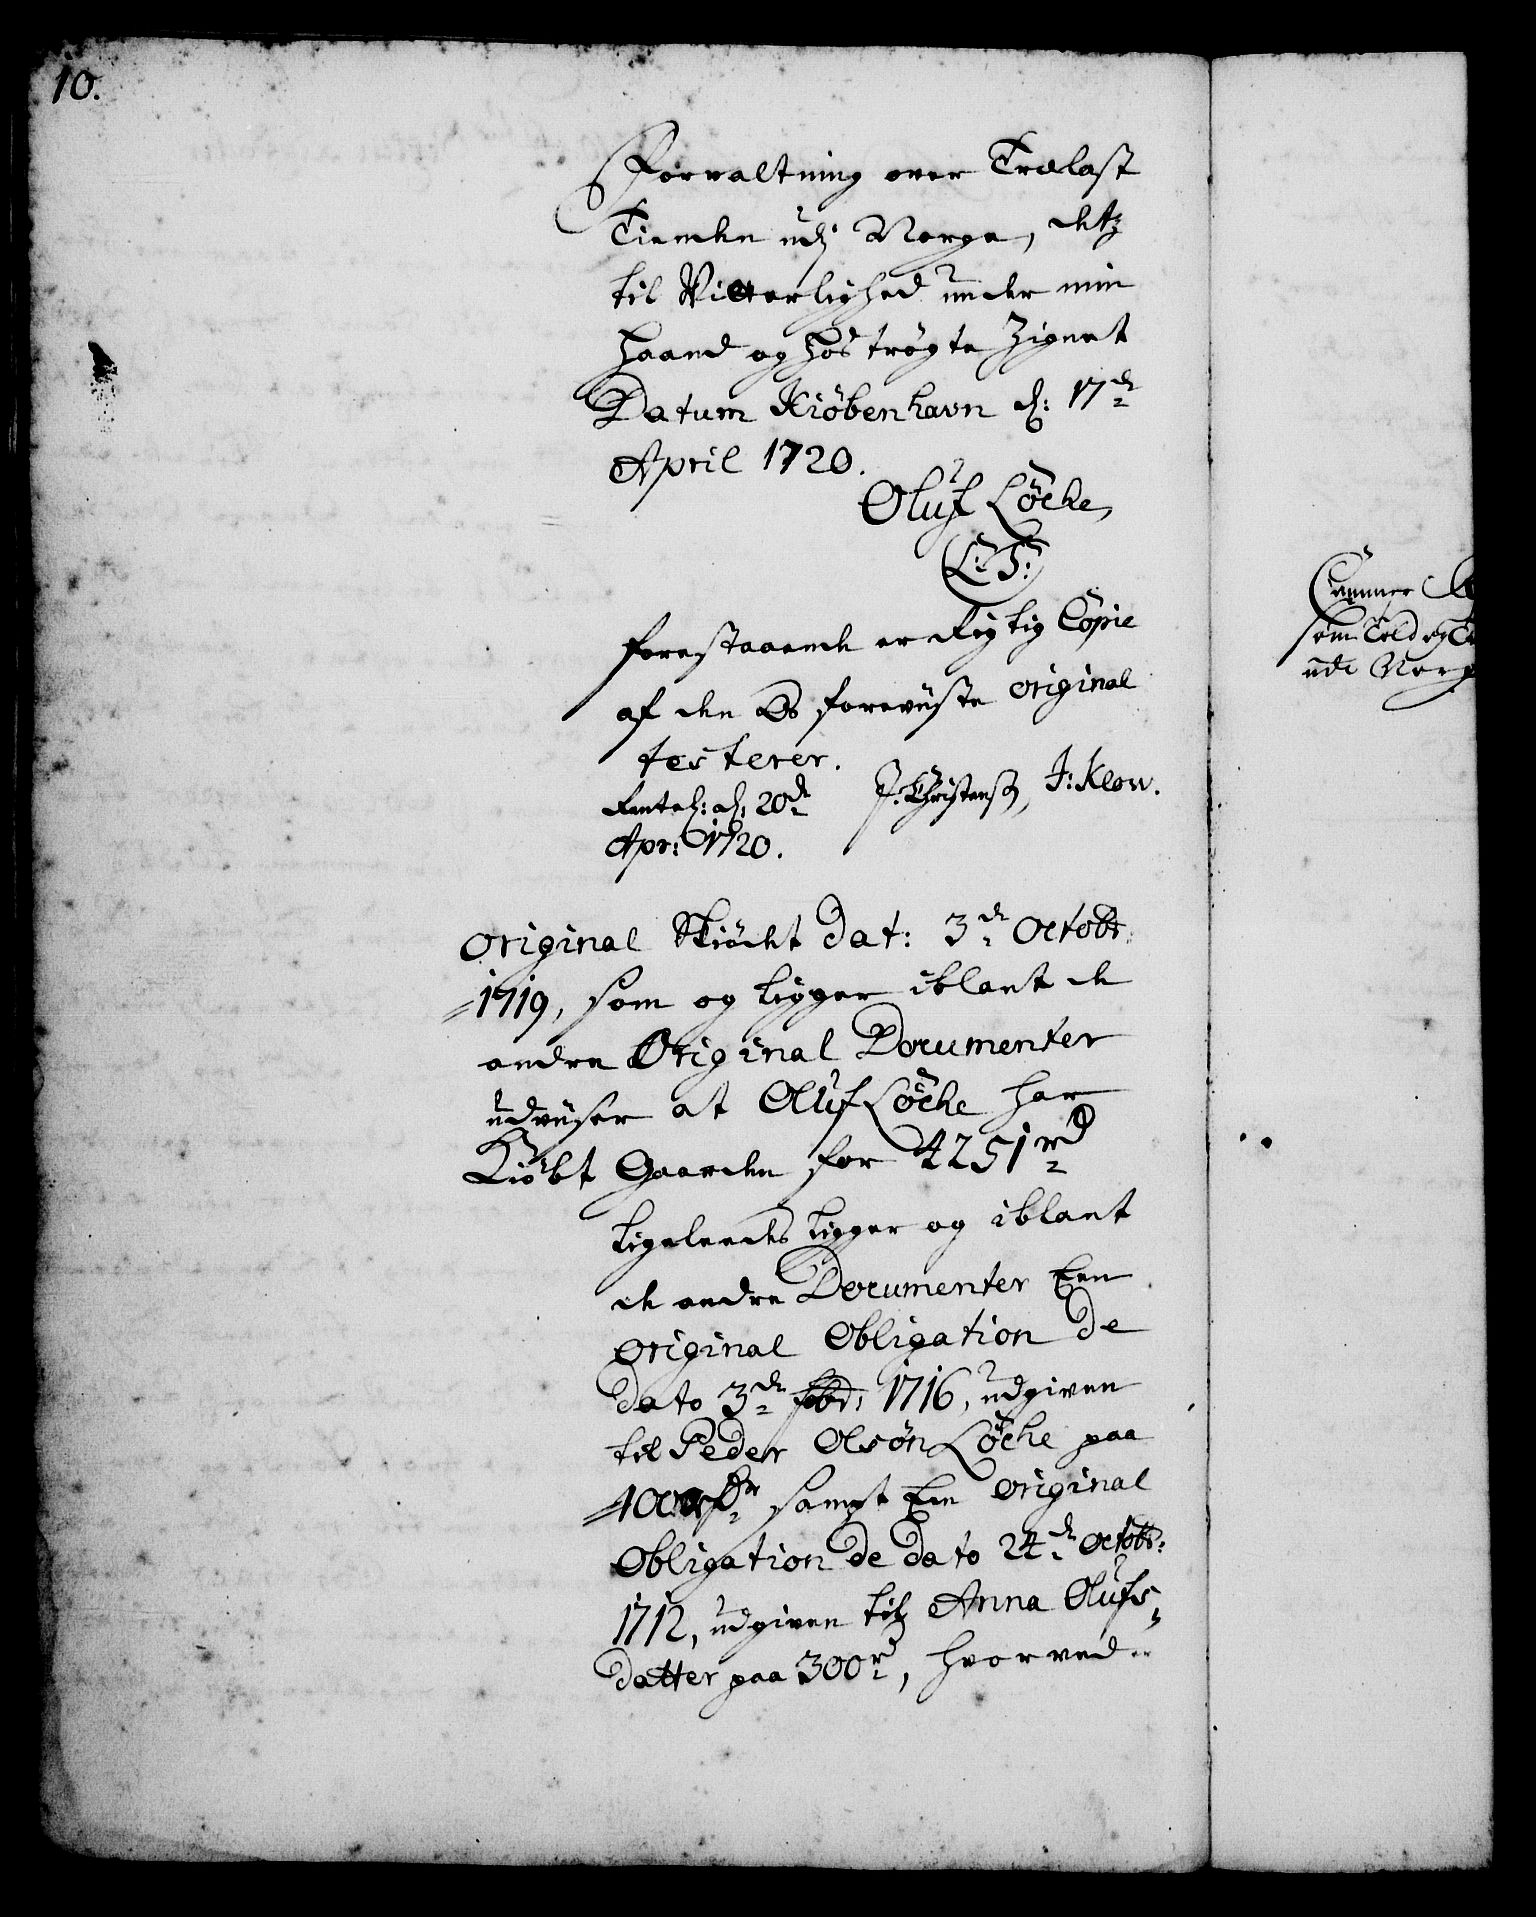 10.
Forvaltning over Trælast
Tienden udj Norge, dets
til Vitterlighed under min
haand og hos trögte Zignet
Datum Kiöbenhavn d: 17de
April 1720.
Olüf Löcke,
(L: S:)
forestaaende er Rigtig Copie
af den Os foreviiste original
testerer.
Rentek: d: 20de
J: Christensen, J: Klow.
Apr: 1720.
Original Skiödet Dat: 3de Octobr:
1719, som og ligger iblant de
andre Original Documenter
udviiser at Olüf Löcke har
Kiöbt Gaarden for 4251 rd
ligeleedes ligger og iblant
de andre Documenter Een
Original Obligation de
Dato 3de 1716, udgiven
til Peder Olsön Löcke paa
sampt Een original
Obligation de Dato 24de Octobr:
1712, udgiven til Anna Olüfs
datter paa 300 rd, hvorved
Cammer
som Told og
udi Norg